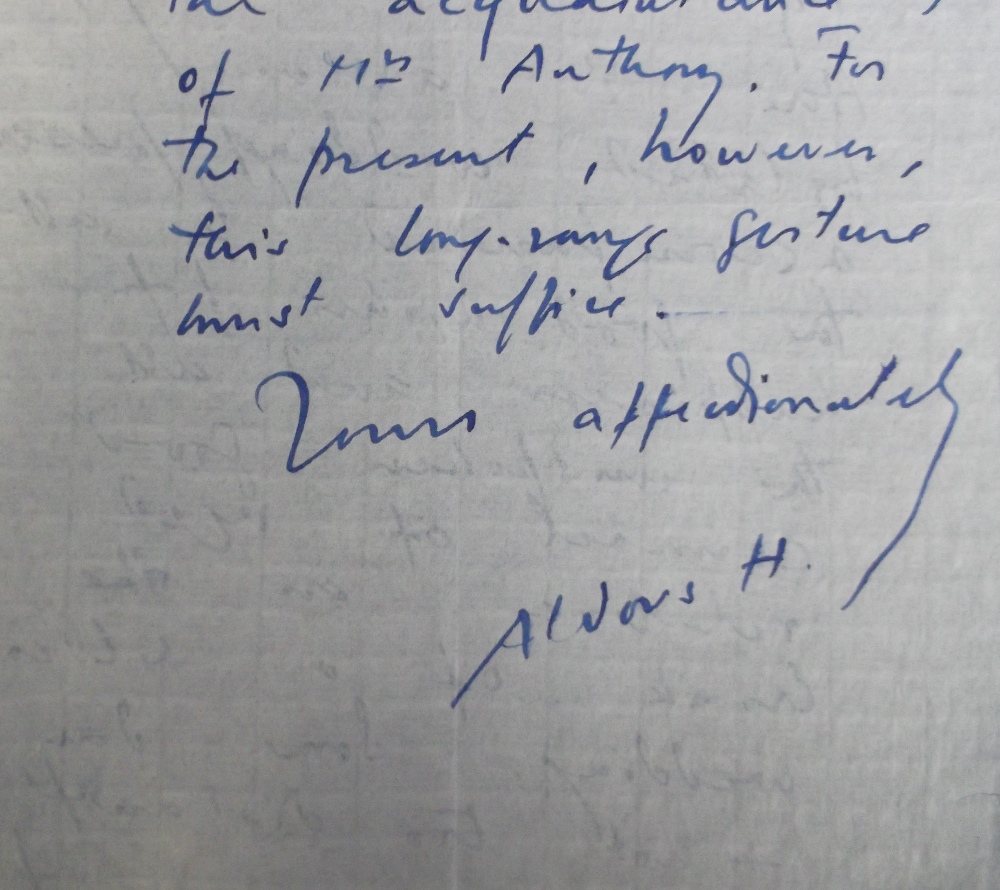 the acquaintance,
of Mrs Anthony. For
the present, however,
this long-range gesture
must suffice.
Yours affectionately
Aldous H.